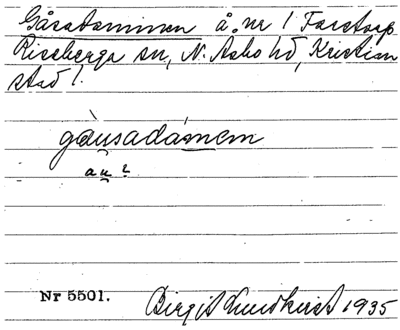 Gåsadammen å nr 1 Farstorp
Riseberga sn, N. Åsbo hd, Kristian
stad l.
gàu̯sadámem
au̯ ?
Nr 5501. Birgit Lundkvist 1935